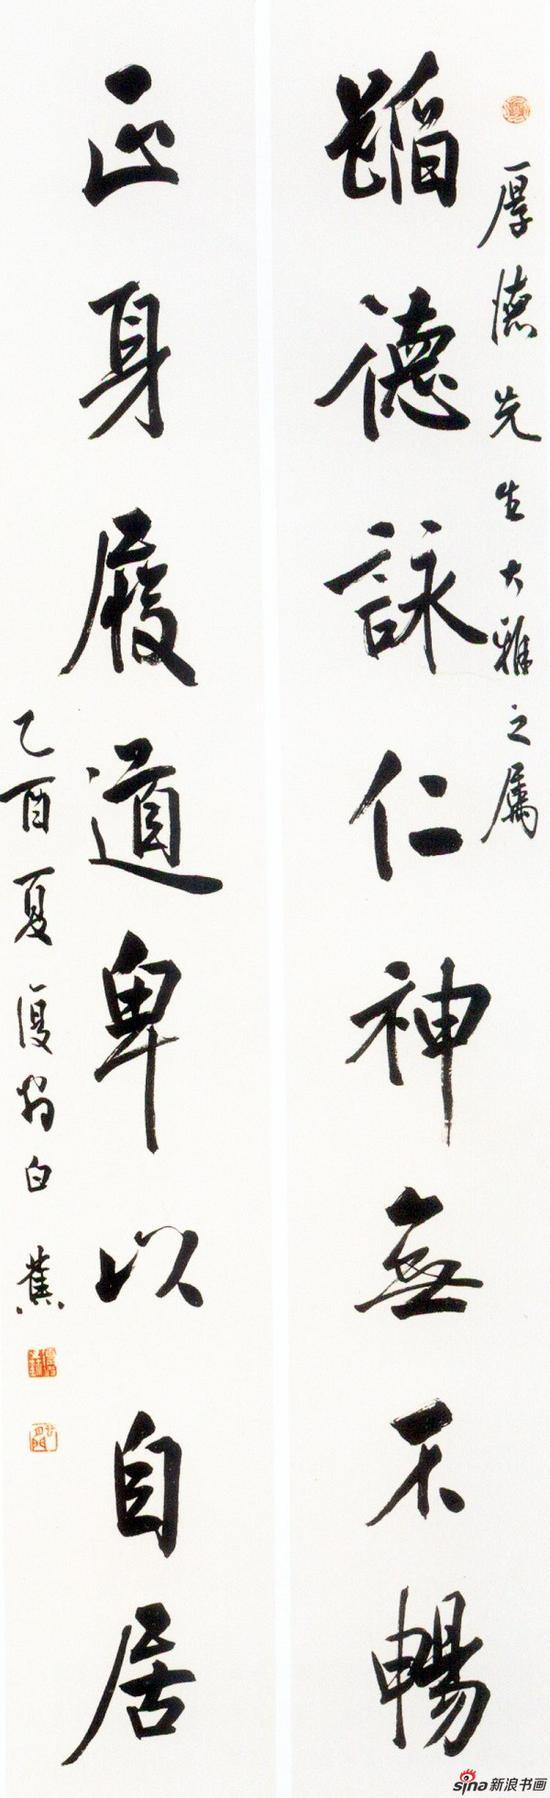 厚德先生大雅之属
蹈德詠仁神無不暢
正身履道卑以自居
乙酉夏復翁白蕉
sina新浪书画